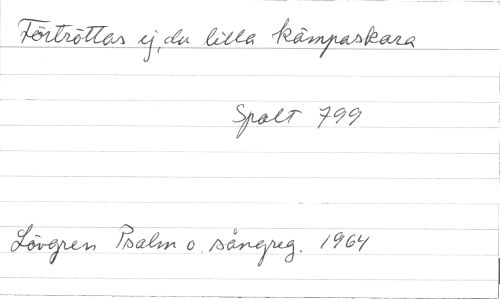 Förtröttas ej, du lilla kämpaskara
Spalt 799
Lövgren Psalm o. sångreg. 1964